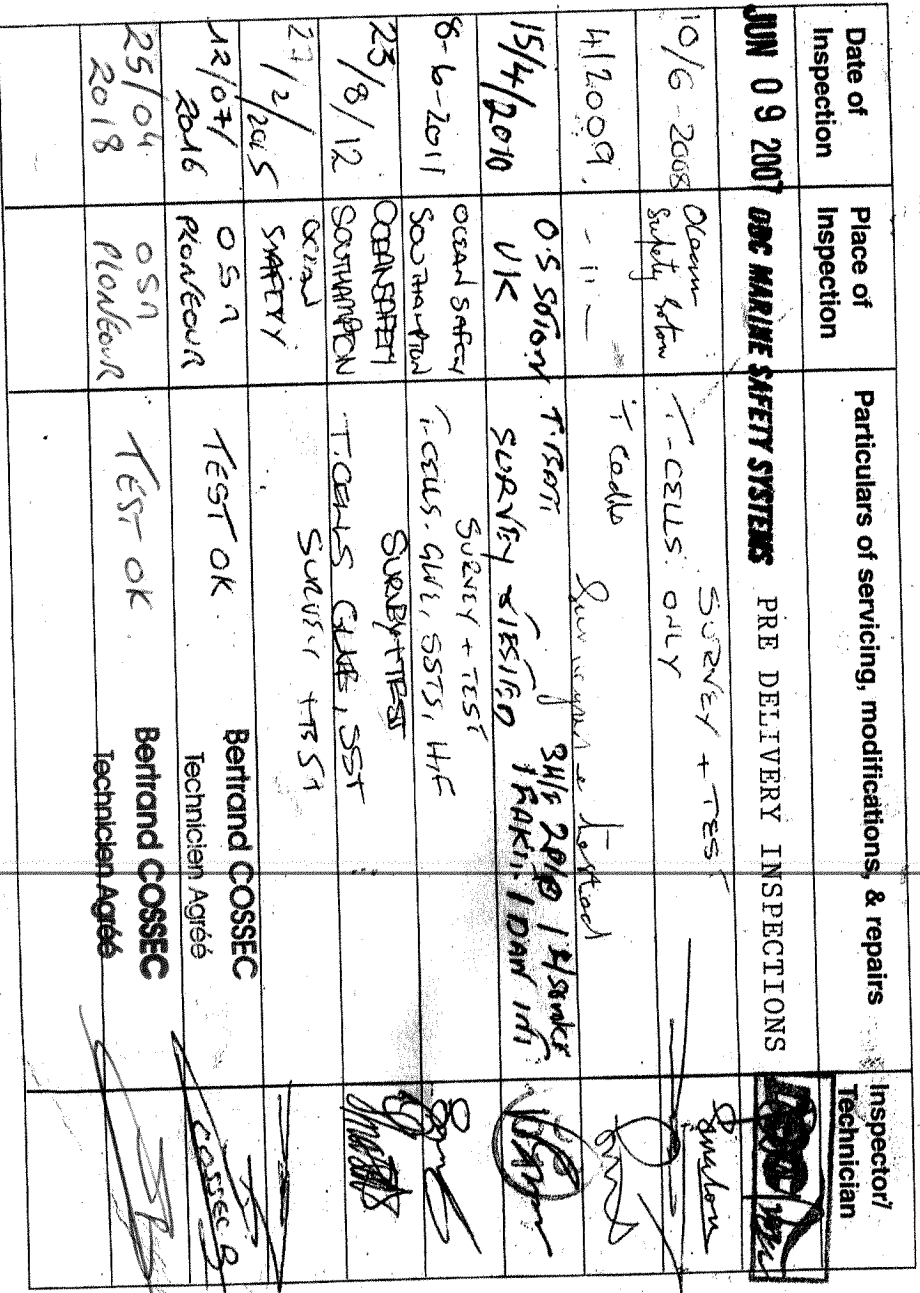 Date of Inspection
Place of Inspection
Particulars of servicing, modifications, & repairs
Inspector/ Technician
JUN 09 2007 DBC MARINE SAFETY SYSTEMS PRE DELIVERY INSPECTIONS
10/6-2008
Ocean
Safety Soton
SURVEY + TEST
T-CELLS. ONLY
4/2009.
- 11 -
T Cells
tested
15/4/2010
O.S SOTON
UK
T.BATT
SURVEY & TESTED
3H/F 2P/B 1 S/SMKE
1 FAKIT 1
8-6-2011
OCEAN SAFETY
SOUTHAMPTON
SURVEY + TEST
T-CELLS. GLUE, SSTS, H/F
23/8/12
OCEAN SAFETY
SOUTHAMPTON
SURVEY + TEST
T.CELLS GLUE, SST
27/2/2015
OCEAN
SAFETY
SURVEY + TEST
12/07/
2016
OSR
PLONEOUR
TEST OK.
Bertrand COSSEC
Technicien Agréé
COSSEC B
25/04
2018
OSR
PLONEOUR
TEST OK.
Bertrand COSSEC
Technicien Agréé